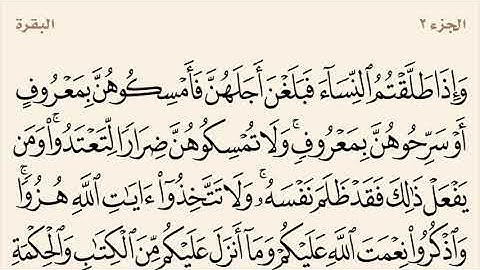 الجزء ٢ البقرة
وَإِذَا طَلَّقۡتُمُ ٱلنِّسَآءَ فَبَلَغۡنَ أَجَلَهُنَّ فَأَمۡسِكُوهُنَّ بِمَعۡرُوفٍ
أَوۡ سَرِّحُوهُنَّ بِمَعۡرُوفٖۚ وَلَا تُمۡسِكُوهُنَّ ضِرَارٗا لِّتَعۡتَدُواْۚ وَمَن
يَفۡعَلۡ ذَٰلِكَ فَقَدۡ ظَلَمَ نَفۡسَهُۥۚ وَلَا تَتَّخِذُوٓاْ ءَايَٰتِ ٱللَّهِ هُزُوٗاۚ
وَٱذۡكُرُواْ نِعۡمَتَ ٱللَّهِ عَلَيۡكُمۡ وَمَآ أَنزَلَ عَلَيۡكُم مِّنَ ٱلۡكِتَٰبِ وَٱلۡحِكۡمَةِ